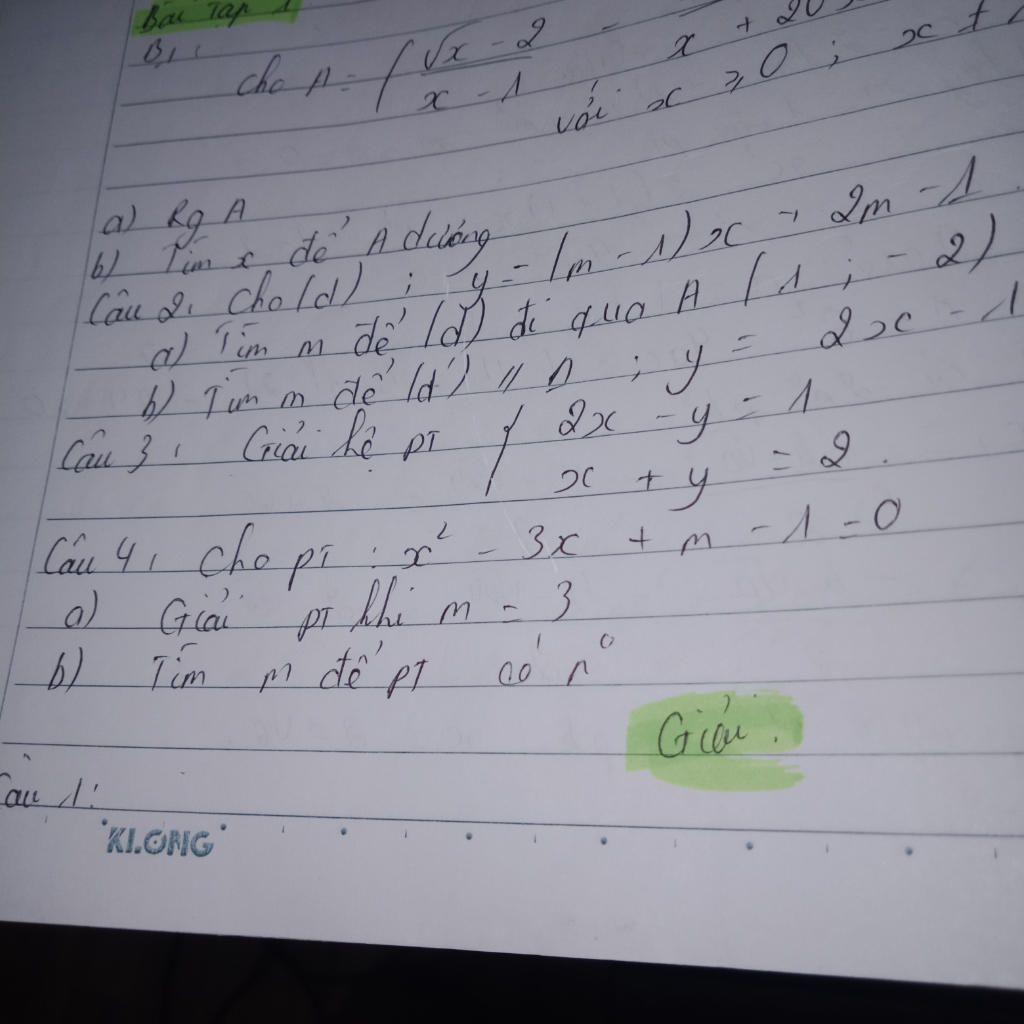 Bài Tập 1
B1:
Cho A = ( √x - 2 / x - 1 - x + 20
với x ≥ 0 ; x ≠
a) Rg A
b) Tìm x để A dương
Câu 2: Cho (d) : y = (m - 1)x + 2m - 1
a) Tìm m để (d) đi qua A (1 ; - 2)
b) Tìm m để (d) // Δ ; y = 2x - 1
Câu 3: Giải hệ pT { 2x - y = 1
x + y = 2.
Câu 4: Cho pT : x² - 3x + m - 1 = 0
a) Giải pT khi m = 3
b) Tìm m để pT có n°
Giải:
Câu 1:
KLONG